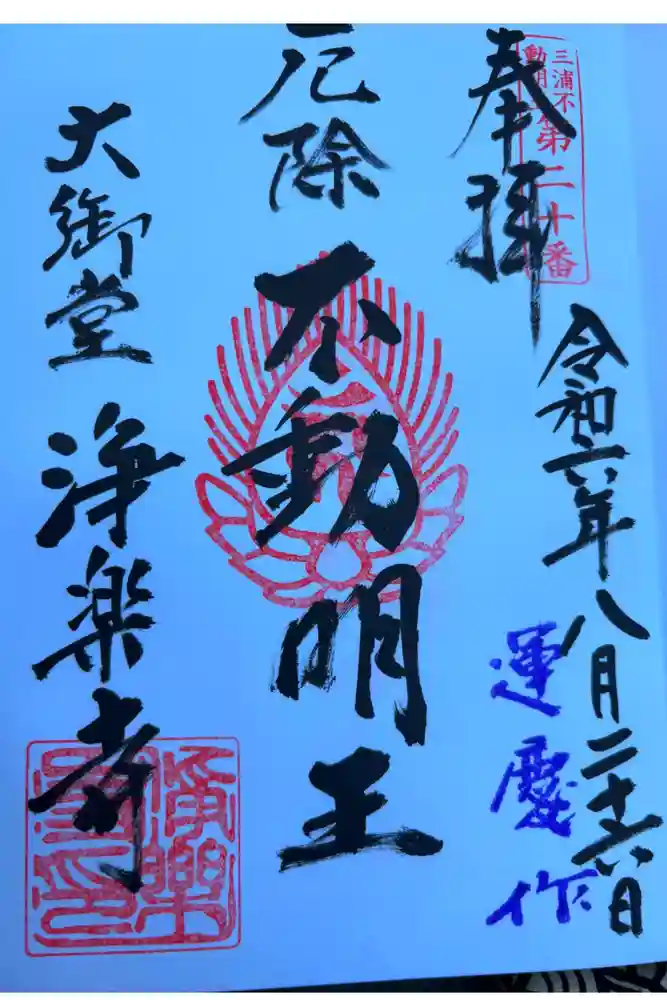 奉拝
三浦不
動明王第二十番
令和六年八月二十六日
運慶作
厄除
不動明王
大御堂
浄楽寺